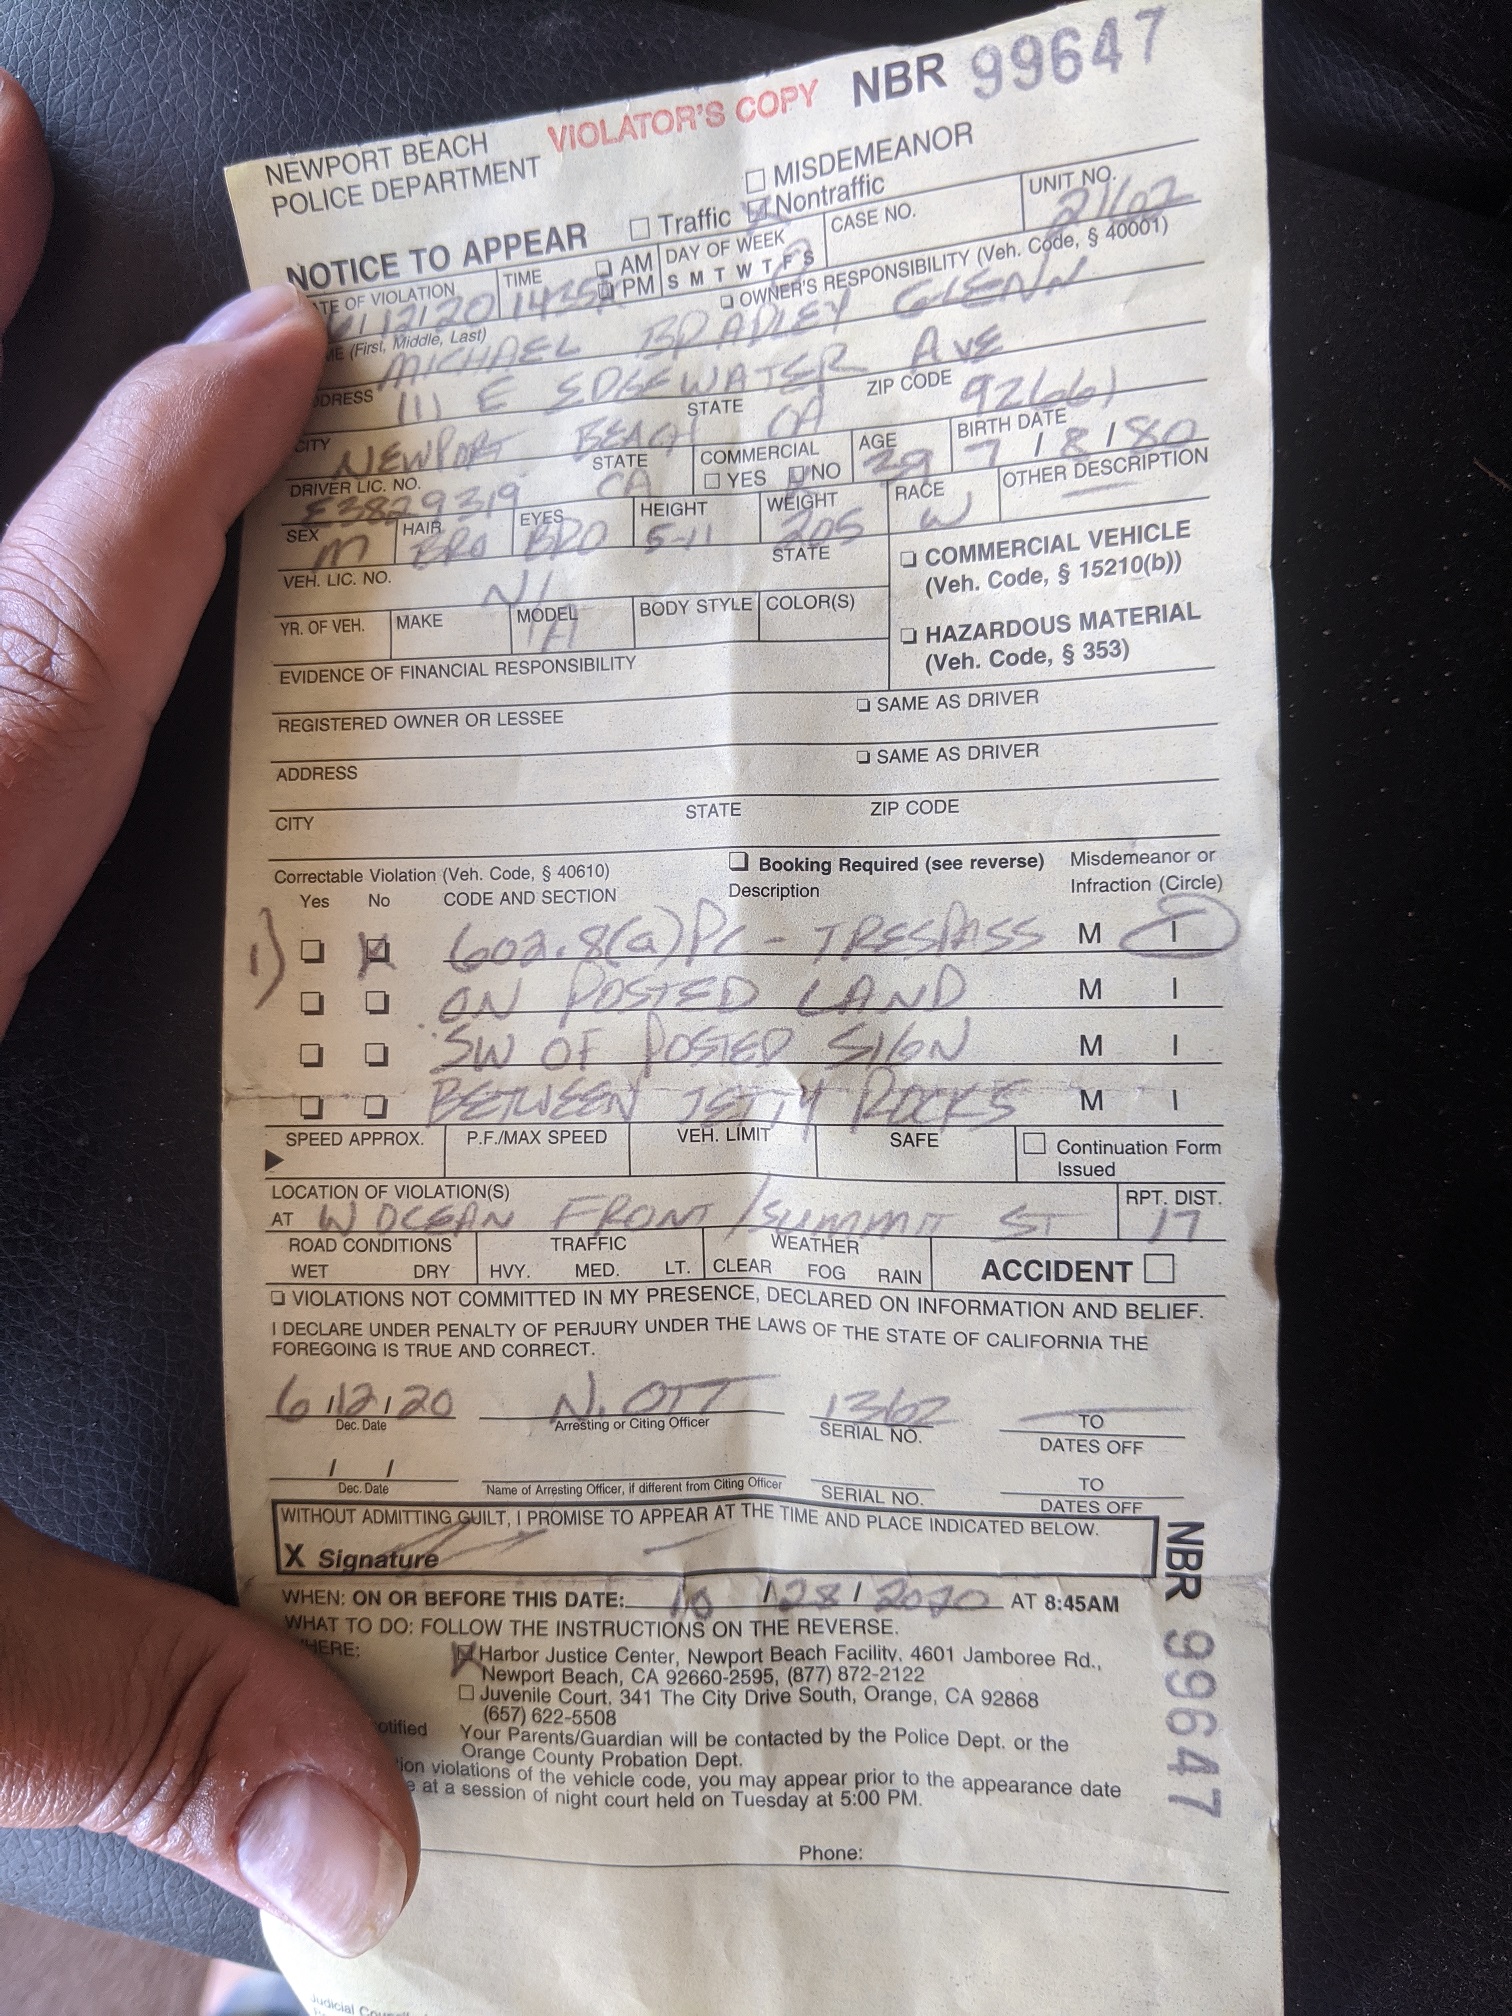 NBR 99647
VIOLATOR'S COPY
NEWPORT BEACH
POLICE DEPARTMENT
MISDEMEANOR
NOTICE TO APPEAR Traffic Nontraffic
TE OF VIOLATION TIME AM PM DAY OF WEEK S M T W T F S CASE NO. UNIT NO.
6/12/20 1435 2162
OWNER'S RESPONSIBILITY (Veh. Code, § 40001)
ME (First, Middle, Last)
MICHAEL BRADLEY GLENN
DRESS
111 E EDGEWATER AVE
CITY STATE ZIP CODE
NEWPORT BEACH CA 92661
DRIVER LIC. NO. STATE COMMERCIAL YES NO AGE BIRTH DATE
E3829319 CA 39 7/8/80
SEX HAIR EYES HEIGHT WEIGHT RACE OTHER DESCRIPTION
M BRO BRO 5-11 205 W
VEH. LIC. NO. STATE
N/A
COMMERCIAL VEHICLE
(Veh. Code, § 15210(b))
YR. OF VEH. MAKE MODEL BODY STYLE COLOR(S)
HAZARDOUS MATERIAL
(Veh. Code, § 353)
EVIDENCE OF FINANCIAL RESPONSIBILITY
REGISTERED OWNER OR LESSEE SAME AS DRIVER
ADDRESS SAME AS DRIVER
CITY STATE ZIP CODE
Correctable Violation (Veh. Code, § 40610) Booking Required (see reverse) Misdemeanor or
Yes No CODE AND SECTION Description Infraction (Circle)
1) 602.8(a)PC - TRESPASS M I
ON POSTED LAND M I
SW OF POSTED SIGN M I
BETWEEN JETTY ROCKS M I
SPEED APPROX. P.F./MAX SPEED VEH. LIMIT SAFE Continuation Form
Issued
LOCATION OF VIOLATION(S) RPT. DIST.
AT W OCEAN FRONT / SUMMIT ST 17
ROAD CONDITIONS TRAFFIC WEATHER
WET DRY HVY. MED. LT. CLEAR FOG RAIN ACCIDENT
VIOLATIONS NOT COMMITTED IN MY PRESENCE, DECLARED ON INFORMATION AND BELIEF.
I DECLARE UNDER PENALTY OF PERJURY UNDER THE LAWS OF THE STATE OF CALIFORNIA THE
FOREGOING IS TRUE AND CORRECT.
6/12/20 N. OTT 1362
Dec. Date Arresting or Citing Officer SERIAL NO. TO
DATES OFF
/ /
Dec. Date Name of Arresting Officer, if different from Citing Officer SERIAL NO. TO
DATES OFF
WITHOUT ADMITTING GUILT, I PROMISE TO APPEAR AT THE TIME AND PLACE INDICATED BELOW.
X Signature
WHEN: ON OR BEFORE THIS DATE: 10 / 28 / 2020 AT 8:45AM
WHAT TO DO: FOLLOW THE INSTRUCTIONS ON THE REVERSE.
HERE: Harbor Justice Center, Newport Beach Facility. 4601 Jamboree Rd.,
Newport Beach, CA 92660-2595, (877) 872-2122
Juvenile Court. 341 The City Drive South, Orange, CA 92868
(657) 622-5508
otified Your Parents/Guardian will be contacted by the Police Dept. or the
Orange County Probation Dept.
ion violations of the vehicle code, you may appear prior to the appearance date
e at a session of night court held on Tuesday at 5:00 PM.
Phone:
NBR 99647
Judicial